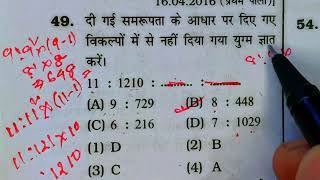 16.04.2016 (प्रथम पाली)
49. दी गई समरूपता के आधार पर दिए गए
विकल्पों में से नहीं दिया गया युग्म ज्ञात
करें।
11 : 1210 :
(A) 9 : 729 (B) 8 : 448
(C) 6 : 216 (D) 7 : 1029
(1) D (2) B
(3) C (4) A
54.
9×8
11:11×(11-1)
11:121×10
:1210